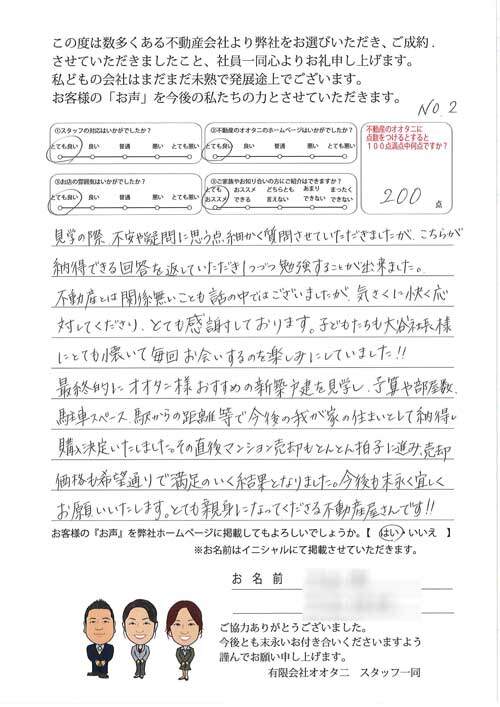 この度は数多くある不動産会社より弊社をお選びいただき、ご成約
させていただきましたこと、社員一同心よりお礼申し上げます。
私どもの会社はまだまだ未熟で発展途上でございます。
お客様の「お声」を今後の私たちの力とさせていただきます。
NO.2
①スタッフの対応はいかがでしたか?
とても良い 良い 普通 悪い とても悪い
②不動産のオオタニのホームページはいかがでしたか?
とても良い 良い 普通 悪い とても悪い
③お店の雰囲気はいかがでしたか?
とても良い 良い 普通 悪い とても悪い
③ご家族やお知り合いの方にご紹介はできますか?
とても オススメ どちらとも あまり まったく
オススメ できる 言えない できない できない
不動産のオオタニに
点数をつけるとすると
100点満点中何点ですか?
200点
見学の際、不安や疑問に思う点、細かく質問させていただきましたが、こちらが
納得できる回答を返していただき1つづつ勉強することが出来ました。
不動産とは関係無いことも話の中ではございましたが、気さくに快く応
対してくださり、とても感謝しております。子どもたちも大谷社長様
にとても懐いて毎回お会いするのを楽しみにしていました!!
最終的にオオタニ様おすすめの新築戸建を見学し、予算や部屋数、
駐車スペース、駅からの距離等で今後の我が家の住まいとして納得し
購入決定いたしました。その直後マンション売却もとんとん拍子に進み、売却
価格も希望通りで満足のいく結果となりました。今後も末永く宜しく
お願いいたします。とても親身になってくださる不動産屋さんです!!
お客様の『お声』を弊社ホームページに掲載してもよろしいでしょうか。【 はい・いいえ 】
※お名前はイニシャルにて掲載させていただきます。
お名前
ご協力ありがとうございました。
今後とも末永いお付き合いくださいますよう
謹んでお願い申し上げます。
有限会社オオタニ スタッフ一同